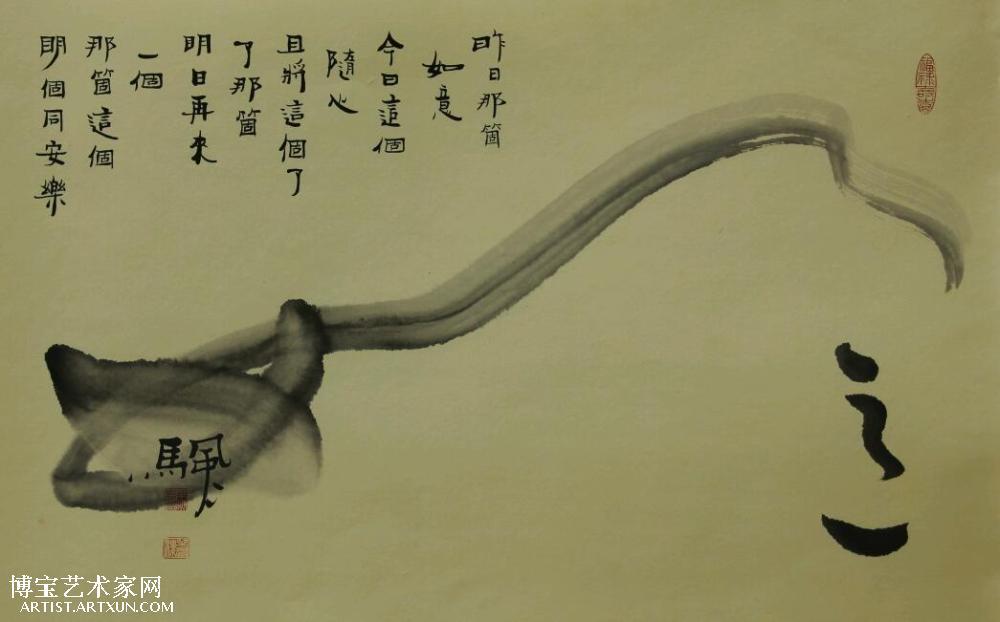 昨日那箇
如意
今日這個
隨心
且將這個了
了那箇
明日再来
一個
那箇這個
明個同安樂
博宝艺术家网
ARTIST.ARTXUN.COM